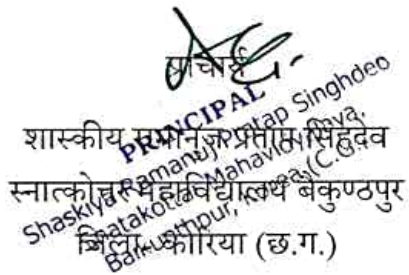 प्राचार्य
शासकीय रामानुज प्रताप सिंहदेव
स्नात्कोत्तर महाविद्यालय बैकुण्ठपुर
जिला - कोरिया (छ.ग.)
PRINCIPAL
Shaskiya Ramanuj Pratap Singhdeo
Snatakottar Mahavidyalaya
Baikunthpur, Korea, (C.G.)